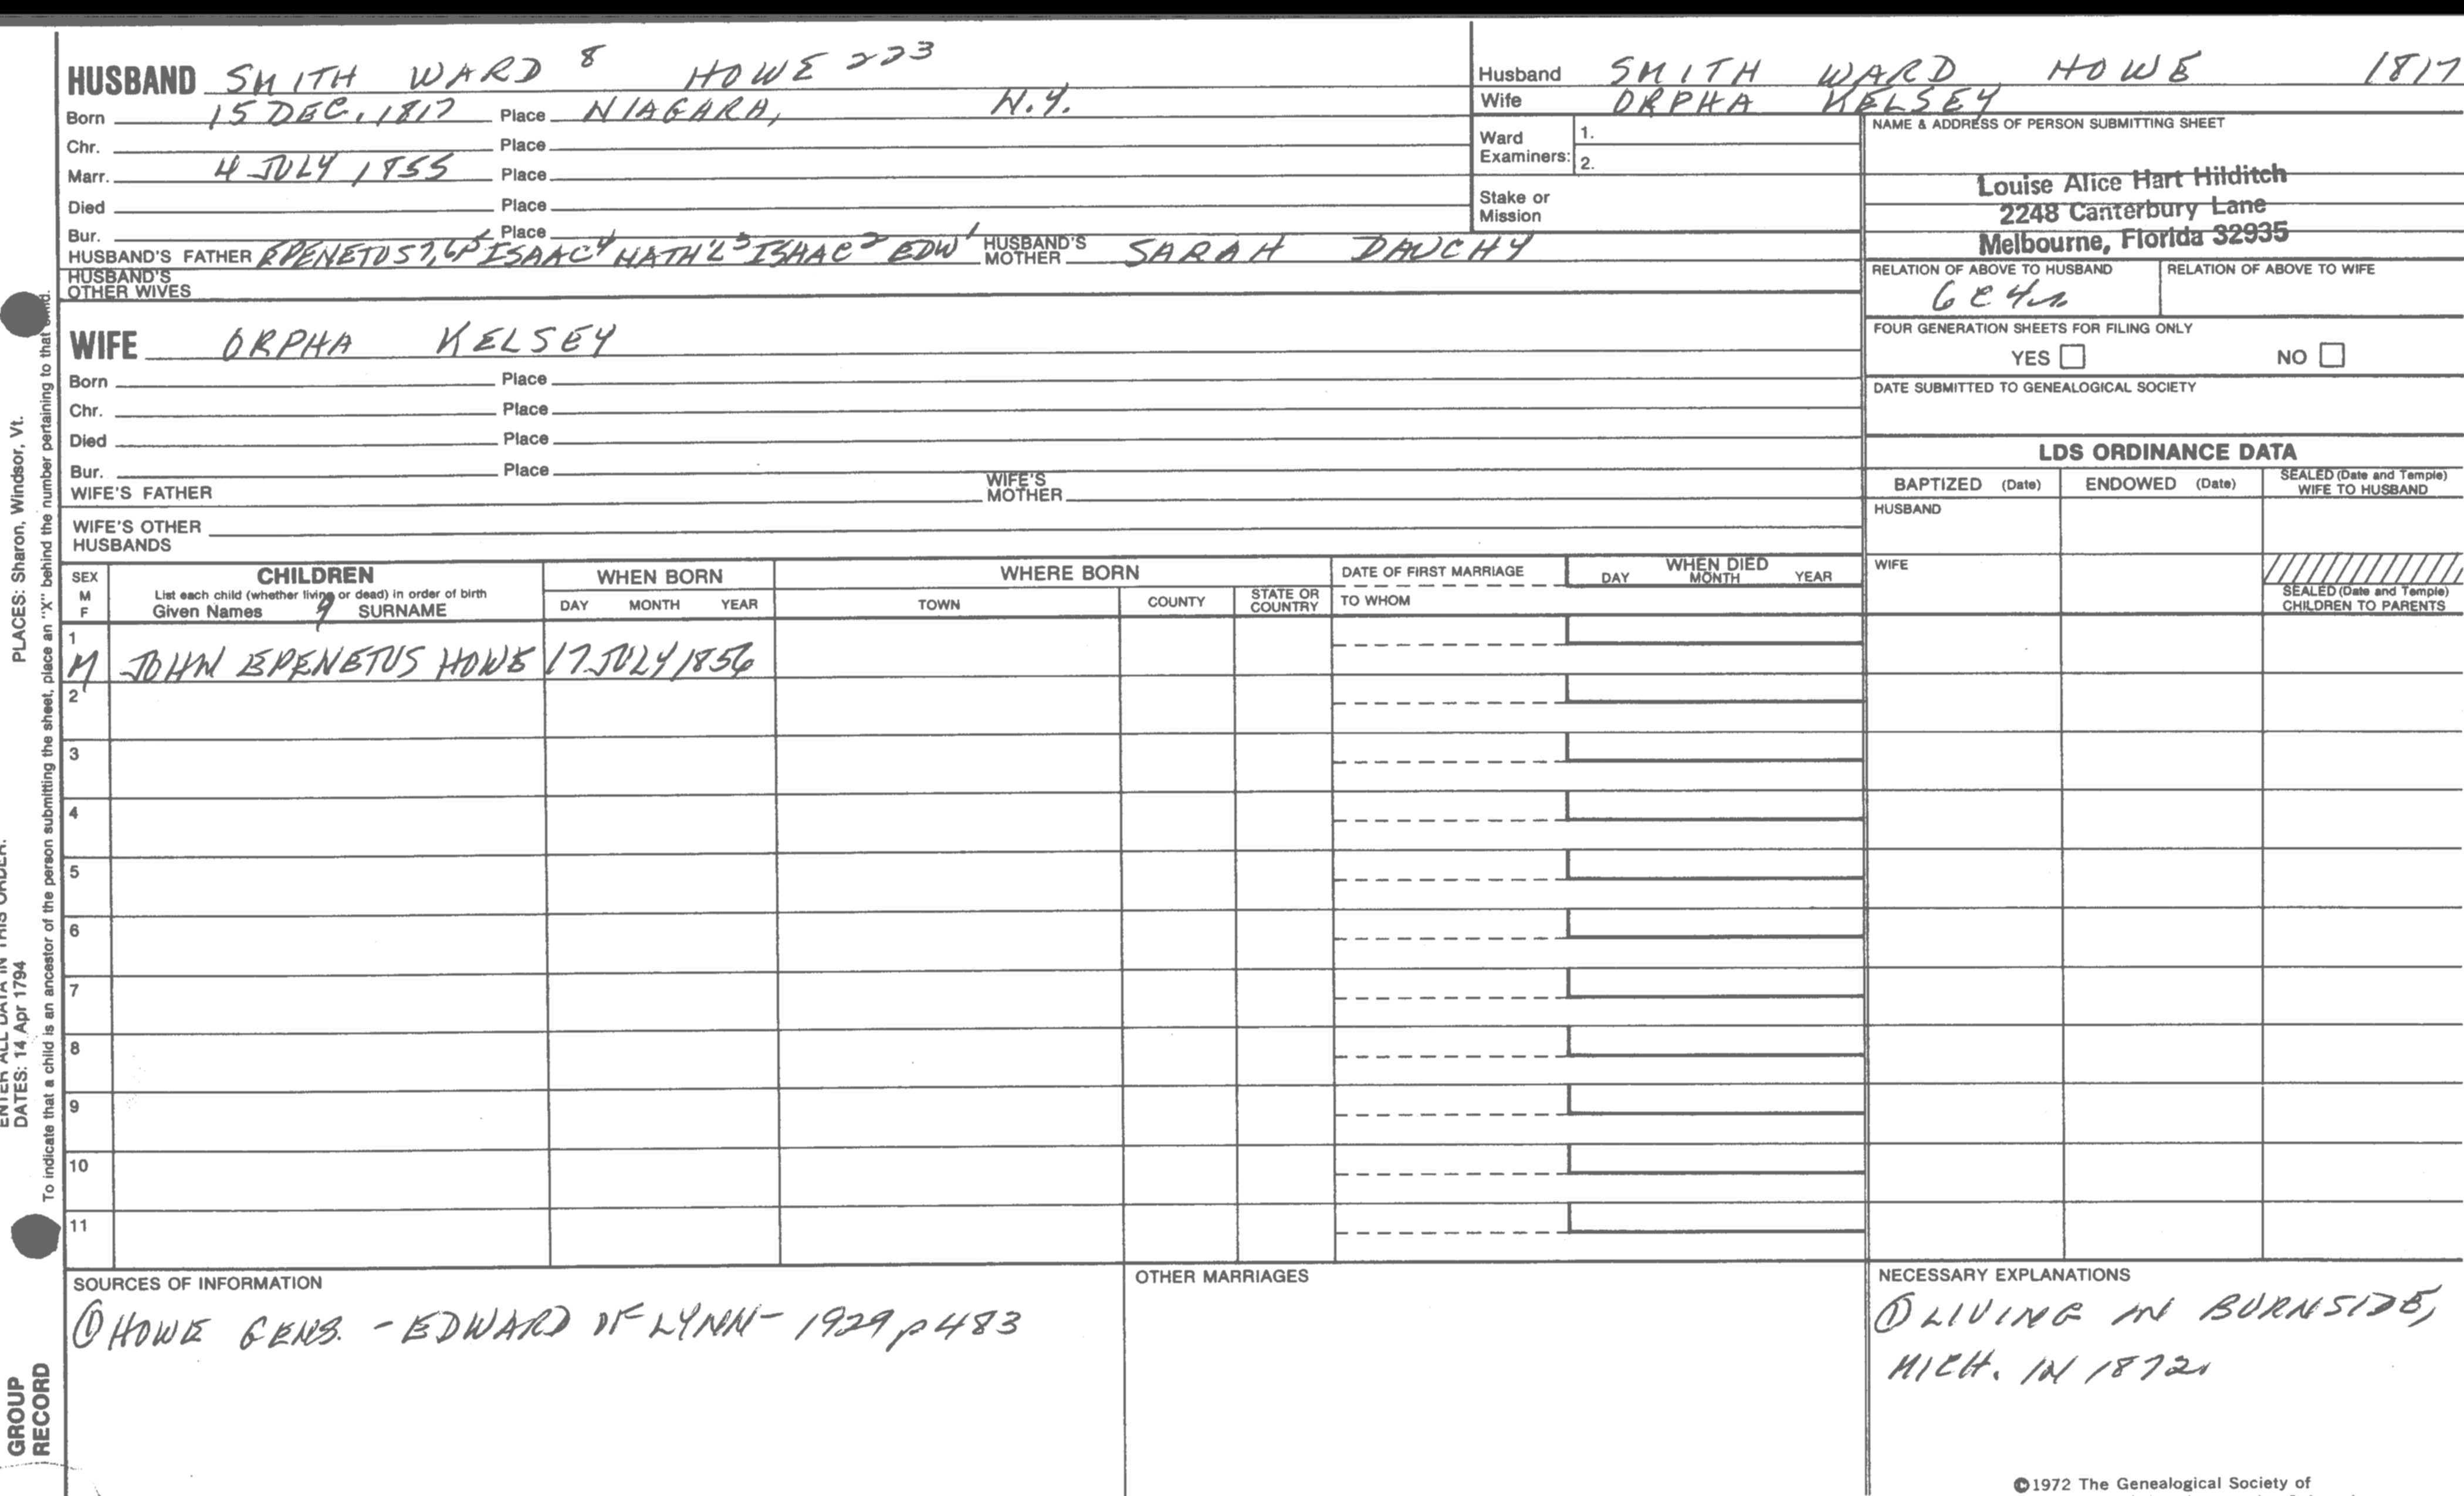 HUSBAND SMITH WARD 8 HOWE 223
Born 15 DEC. 1817 Place NIAGARA, N.Y.
Chr. Place
Marr. 4 JULY 1855 Place
Died Place
Bur. Place
HUSBAND'S FATHER EPENETUS 7, 6, 5 ISAAC 4 NATH'L 3 ISAAC 2 EDW 1 HUSBAND'S MOTHER SARAH DAUCHY
HUSBAND'S OTHER WIVES
WIFE ORPHA KELSEY
Born Place
Chr. Place
Died Place
Bur. Place
WIFE'S FATHER WIFE'S MOTHER
WIFE'S OTHER HUSBANDS
Husband SMITH WARD HOWE 1817
Wife ORPHA KELSEY
Ward Examiners: 1.
2.
Stake or Mission
NAME & ADDRESS OF PERSON SUBMITTING SHEET
Louise Alice Hart Hilditch
2248 Canterbury Lane
Melbourne, Florida 32935
RELATION OF ABOVE TO HUSBAND RELATION OF ABOVE TO WIFE
6C4r
FOUR GENERATION SHEETS FOR FILING ONLY
YES NO
DATE SUBMITTED TO GENEALOGICAL SOCIETY
LDS ORDINANCE DATA
BAPTIZED (Date) ENDOWED (Date) SEALED (Date and Temple) WIFE TO HUSBAND
HUSBAND
WIFE
SEALED (Date and Temple) CHILDREN TO PARENTS
SEX M F CHILDREN WHEN BORN WHERE BORN DATE OF FIRST MARRIAGE WHEN DIED
List each child (whether living or dead) in order of birth
Given Names 9 SURNAME DAY MONTH YEAR TOWN COUNTY STATE OR COUNTRY TO WHOM DAY MONTH YEAR
1
M JOHN EPENETUS HOWE 17 JULY 1856
2
3
4
5
6
7
8
9
10
11
SOURCES OF INFORMATION
① HOWE GENS. - EDWARD OF LYNN - 1929 p 483
OTHER MARRIAGES
NECESSARY EXPLANATIONS
① LIVING IN BURNSIDE,
MICH. IN 1872.
©1972 The Genealogical Society of
PLACES: Sharon, Windsor, Vt.
ENTER ALL DATA IN THIS ORDER:
DATES: 14 Apr 1794
To indicate that a child is an ancestor of the person submitting the sheet, place an "X" behind the number pertaining to that child.
GROUP
RECORD